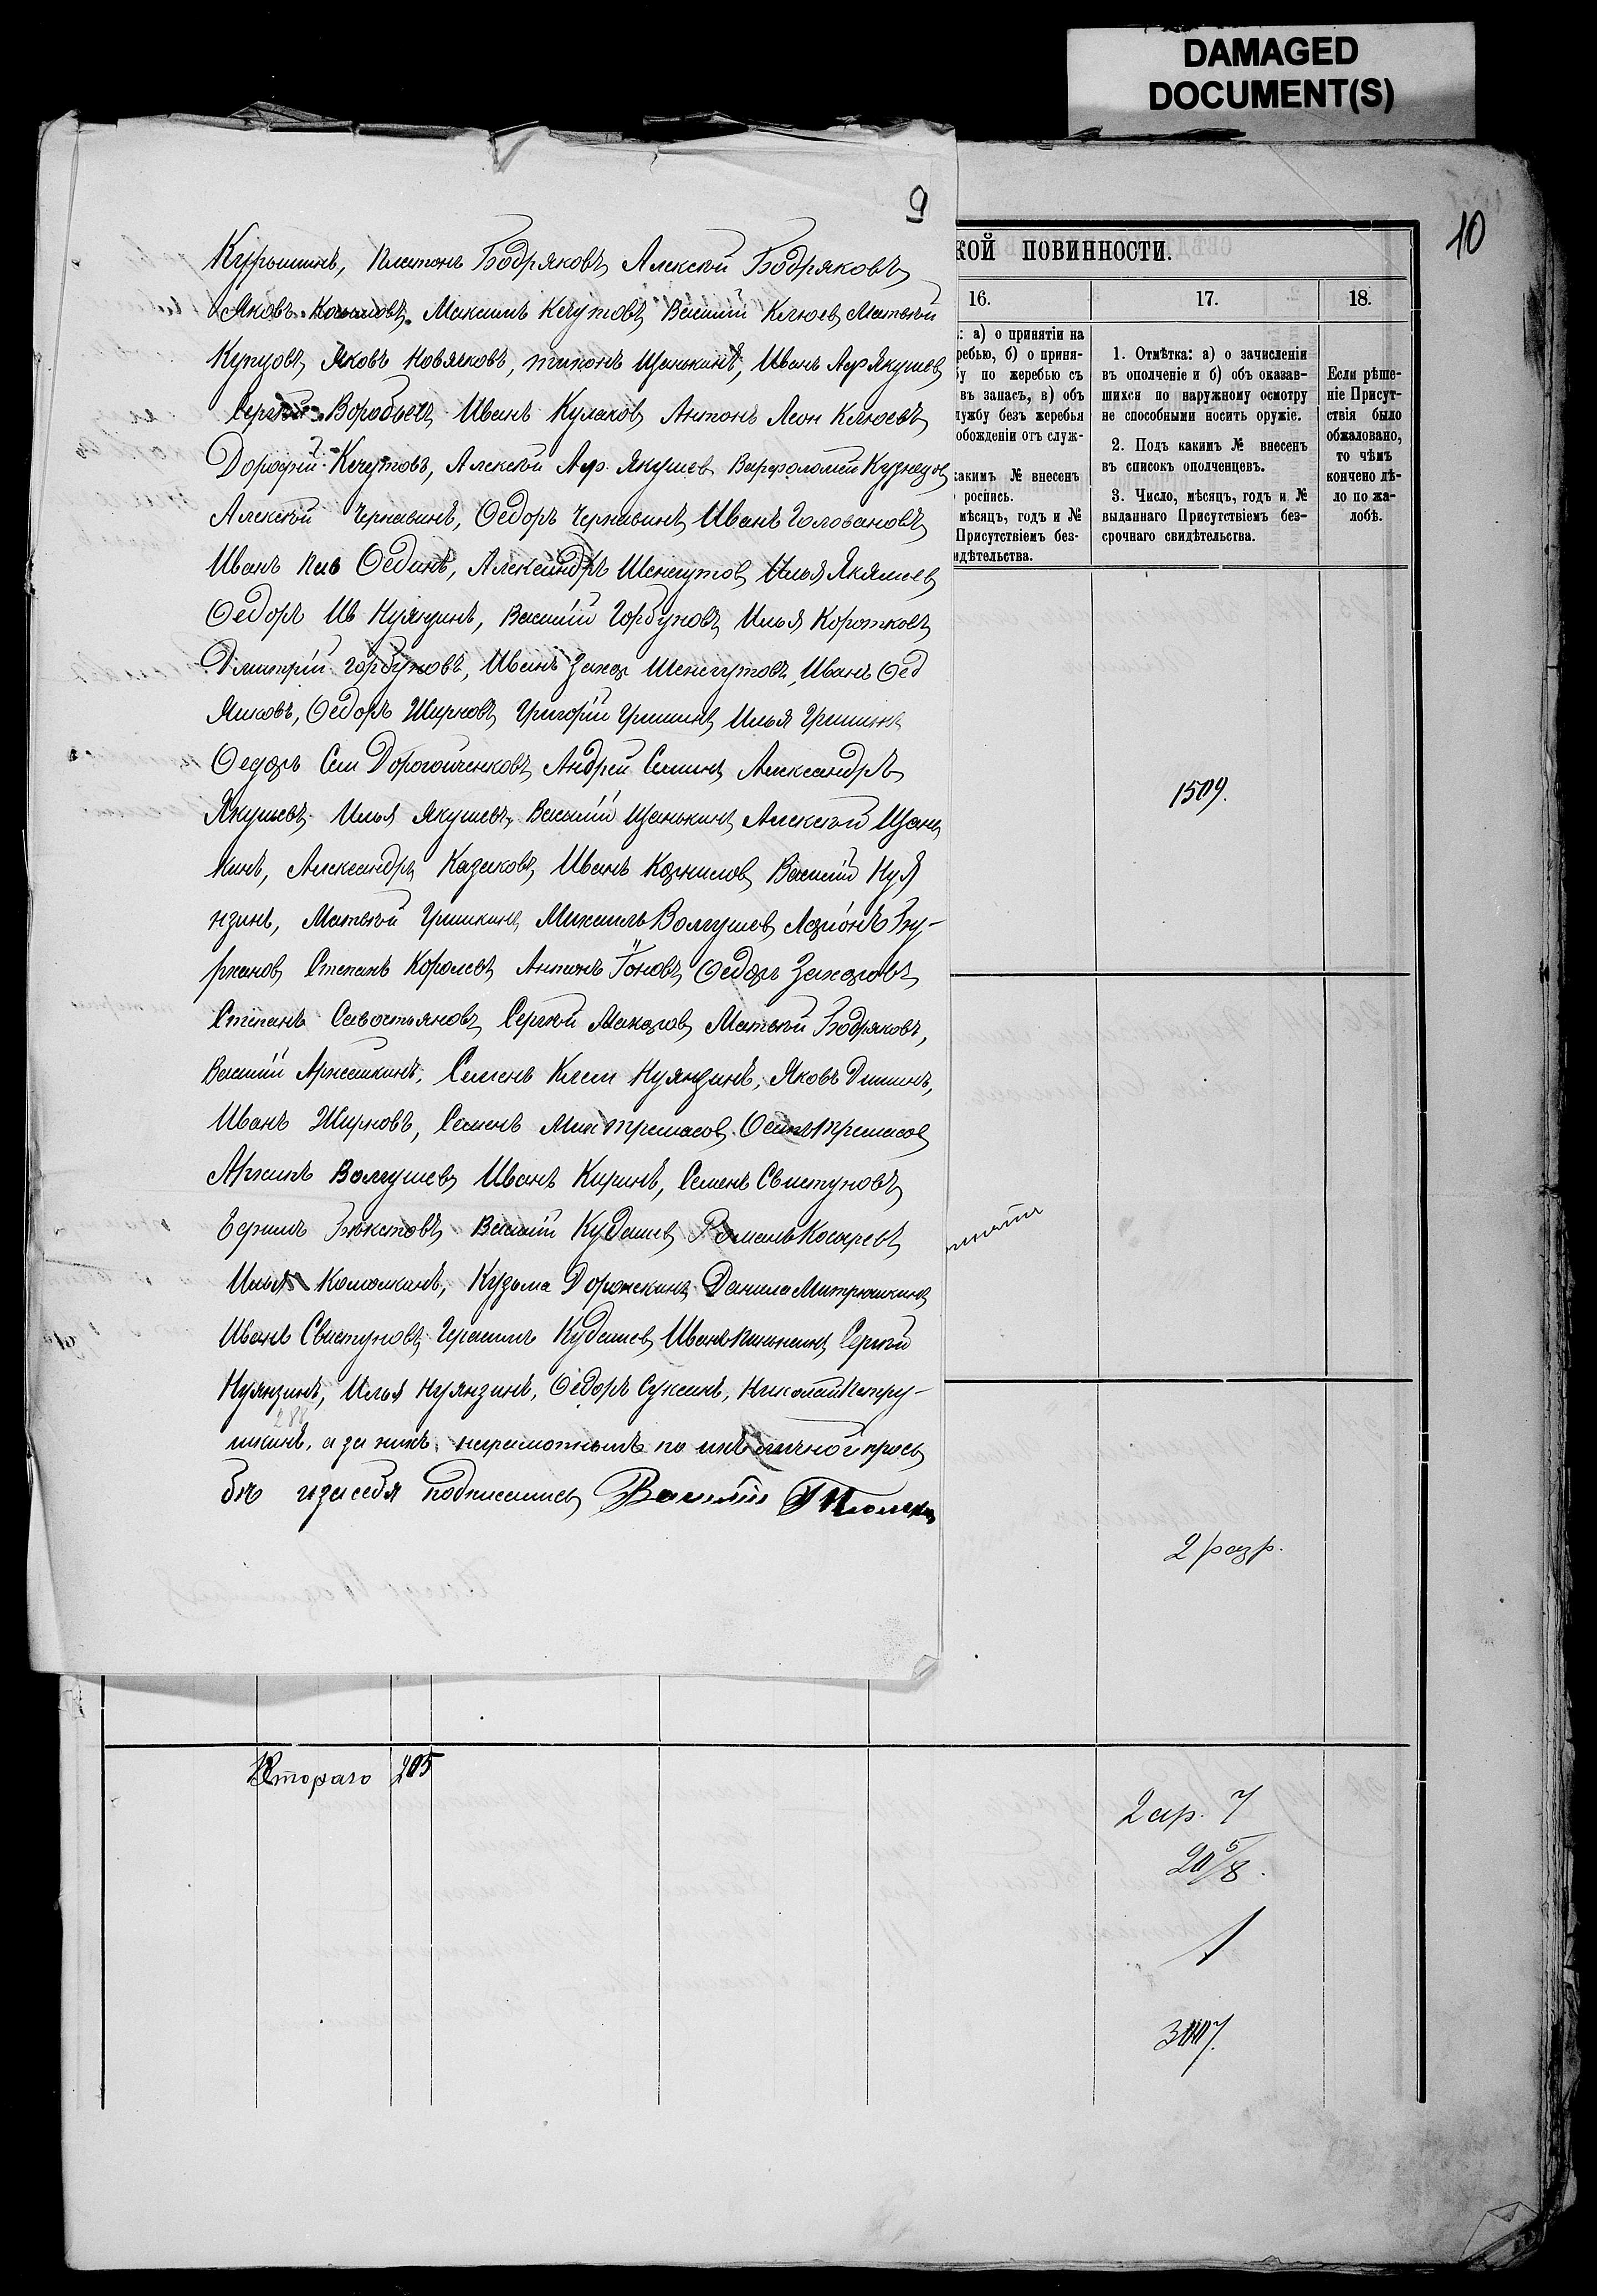 DAMAGED
DOCUMENT(S)
9
Курышинъ, Платонъ Бодряковъ, Алексѣй Бодряковъ,
Яковъ Максимъ Кечутовъ, Василій Клюев, Матвѣй
Купцовъ, Яковъ Новячковъ, Тихонъ Щанькинъ, Иванъ Аф Якушев,
Сергѣй Воробьевъ, Иванъ Кулаковъ, Антонъ Леон Клюевъ,
Дорофей Кечутовъ, Алексѣй Аф. Якушев, Варфоломей Кузнецов,
Алексѣй Чернавинъ, Ѳедоръ Чернавинъ, Иванъ Головановъ,
Иванъ Ѳединъ, Александръ Шенчутов, Илья
Ѳедоръ Ив Нуянзинъ, Василій Горбуновъ, Илья Коротковъ,
Дмитрій Горбуновъ, Иванъ Захар Шенчутовъ, Иванъ Ѳед
Яшковъ, Ѳедоръ Ширковъ, Григорій Гришинъ, Илья Гришинъ
Ѳедоръ Сем Дорогойченковъ, Андрей Семинъ, Александръ
Якушевъ, Илья Якушевъ, Василій Щанькинъ, Алексѣй Щань
кинъ, Александръ Казаковъ, Иванъ Корнилов, Василій Нуя
нзинъ, Матвѣй Гришкинъ, Михаилъ Волгушев, Ларіонъ Бу-
рханов, Степанъ Королевъ, Антонъ Іоновъ, Ѳедоръ Захаровъ,
Степанъ Савостьяновъ, Сергѣй Макаров, Матвѣй Бодряковъ,
Василій Семенъ Клем Нуянзинъ, Яковъ Диминъ,
Иванъ Жирновъ, Семенъ Мих Тремасов, Осипъ Тремасов,
Архипъ Волгушев, Иванъ Киринъ, Семенъ Свистуновъ,
Ефимъ Василій Кудашев, Романъ Косаревъ,
Илья Коломкинъ, Кузьма Дорожкинъ, Данила Митрюшкинъ,
Иванъ Свистуновъ, Герасимъ Кудашев, Иванъ Сергѣй
Нуянзинъ, Илья Нуянзинъ, Ѳедоръ Суксинъ, Николай Петру-
шкинъ, а за нихъ неграмотныхъ по ихъ личной прось
бѣ и за себя подписались, Василій
КОЙ ПОВИННОСТИ.
10
16. 17. 18.
: а) о принятіи на
ребью, б) о приня-
у по жеребью съ
въ запасъ, в) объ
лужбу безъ жеребья
обожденіи отъ служ-
какимъ № внесенъ
роспись.
мѣсяцъ, годъ и №
Присутствіемъ без-
идѣтельства.
1. Отмѣтка: а) о зачисленіи
въ ополченіе и б) объ оказав-
шихся по наружному осмотру
не способными носить оружіе.
2. Подъ какимъ № внесенъ
въ списокъ ополченцевъ.
3. Число, мѣсяцъ, годъ и №
выданнаго Присутствіемъ без-
срочнаго свидѣтельства.
Если рѣше-
ніе Присут-
ствія было
обжаловано,
то чѣмъ
кончено дѣ-
ло по жа-
лобѣ.
1509.
2 разр.
Втораго 205
2 ар. 7
20 5/8.
1
3007.